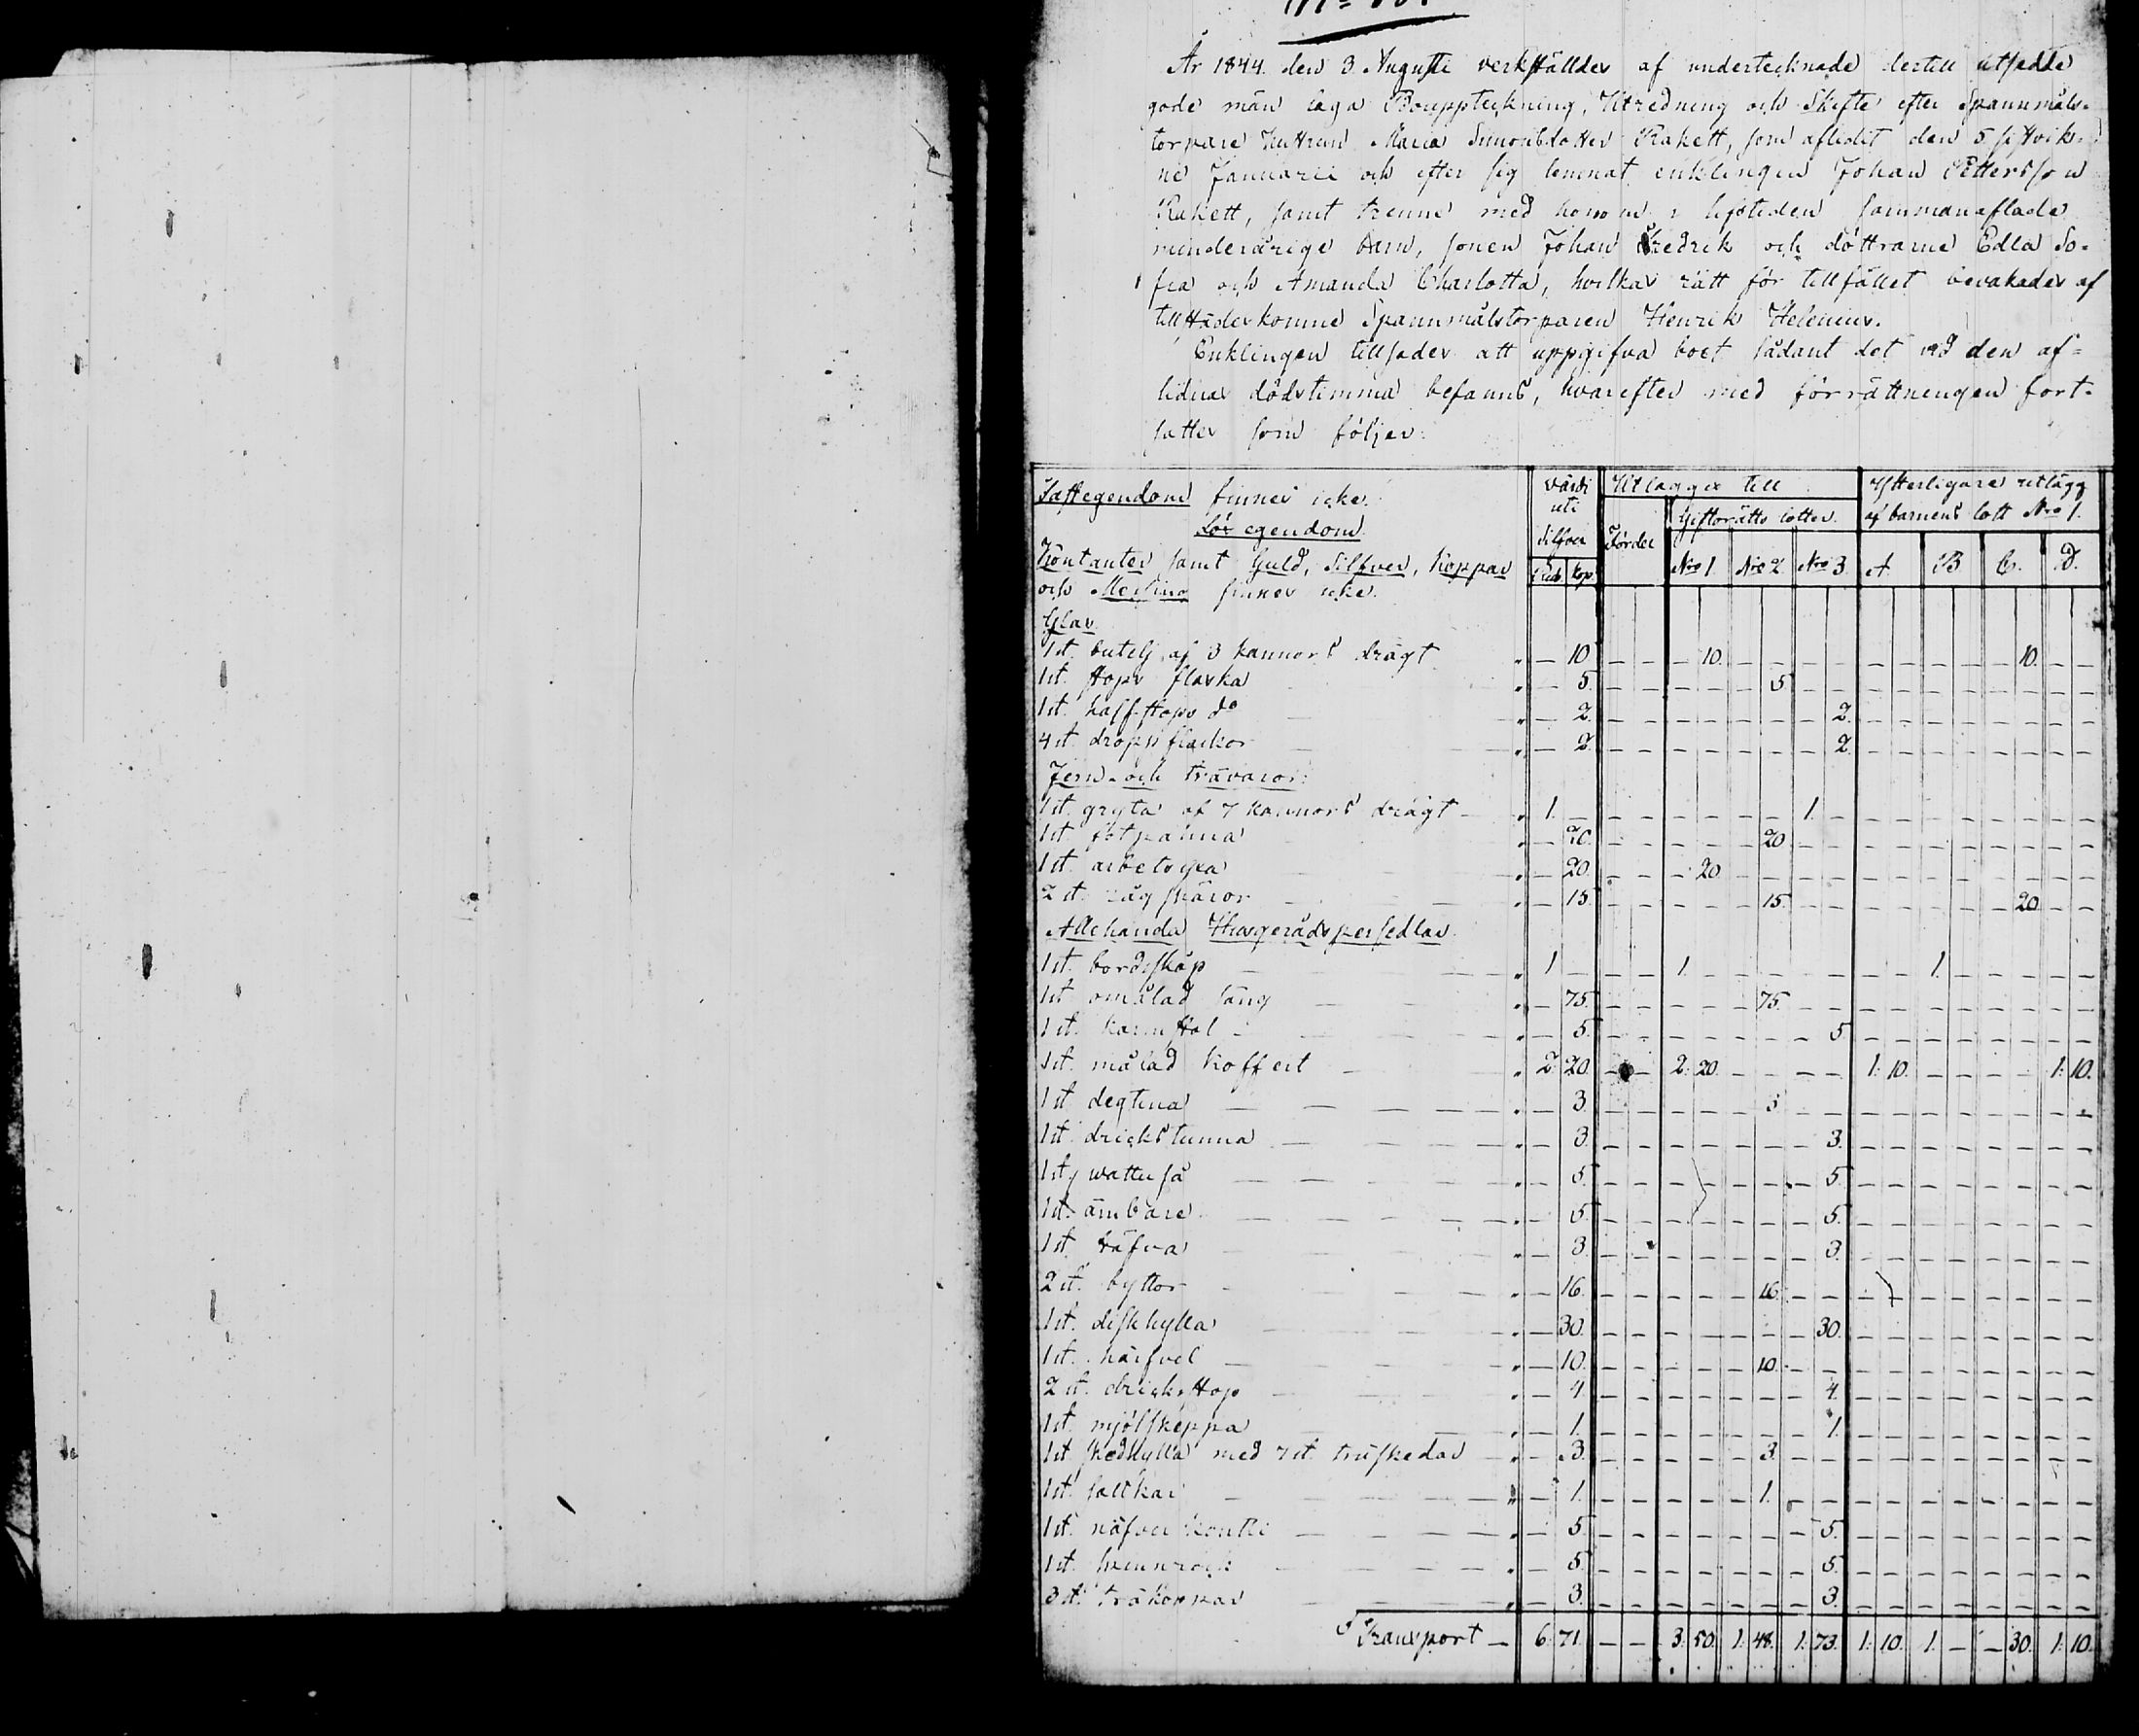 År 1844. den 3 Augusti verkställdes af undertecknade dertill utsedde
gode män laga Bouppteckning, Utredning och Skifte efter Spannmåls-
torpare Hustrun Maria Simonsdotter Rakett, som aflidit den 5 sistvik-
ne Januarii och efter sig lemnat enklingen Johan Pettersson
Rakett, samt trenne med honom i lifstiden sammanaflade
minderårige barn, sonen Johan Fredrik och döttrarne Edla So-
fia och Amanda Charlotta, hvilkas rätt för tillfället bevakades af
tillstädeskomne Spannmålstorparen Henrik Helenius.
Enklingen tillsades att uppgifva boet sådant det vid den af-
lidnas dödstimma befanns, hvarefter med förrättningen fort-
sattes som följer:
Värde uti Silfver Rub. Kop. Utlägges till Giftorätts lotter. Nro 1. Nro 2. Nro 3. Ytterligare utlägg af barnens lott Nro 1. A. B. C. D.
Fastegendom finnes icke.
Lös egendom
Kontanter samt Guld, Silfver, Koppar
och Messing finnes icke.
Glas
1 st. butelj af 3 kannors drägt " — 10. — — 10. — — — — — — — — — 10. — —
1 st. stops flaska " — 5. 5.
1 st. half stops do " — 2. 2.
4 st. dropsflaskor " — 2. 2.
Jern- och trävaror:
1 st. gryta af 7 kannors drägt " 1. — 1.
1 st. fotpanna " — 20. 20
1 st. arbetsyxa " — 20. 20
2 st. råg skäror " — 15. 15. 20
Allehanda Husgerådspersedlar
1 st. bordskåp " 1 — 1. 1.
1 st. omålad säng " — 75. 75.
1 st. karmstol " — 5. 5
1 st. målad Koffert " 2. 20. 2. 20. 1. 10. 1. 10.
1 st. degtina " — 3. 3
1 st. dricks tunna " — 3. 3.
1 st. wattu så " — 5. 5.
1 st. ämbare " — 5. 5.
1 st. stäfva " — 3. 3.
2 st. byttor " — 16. 16.
1 st. diskhylla " — 30. 30.
1 st. härfvel " — 10. 10.
2 st. dricks stop " — 4 4.
1 st. mjölskäppa " — 1. 1.
1 st. skedhylla med 7 st. träskedar " — 3. 3.
1 st. saltkar " — 1. 1.
1 st. näfver kontti " — 5. 5.
1 st. " — 5. 5.
3 st. träkoppar " — 3. 3.
Transport — 6. 71. — — 3. 50. 1. 48. 1. 73. 1. 10. 1. — — 30. 1. 10.